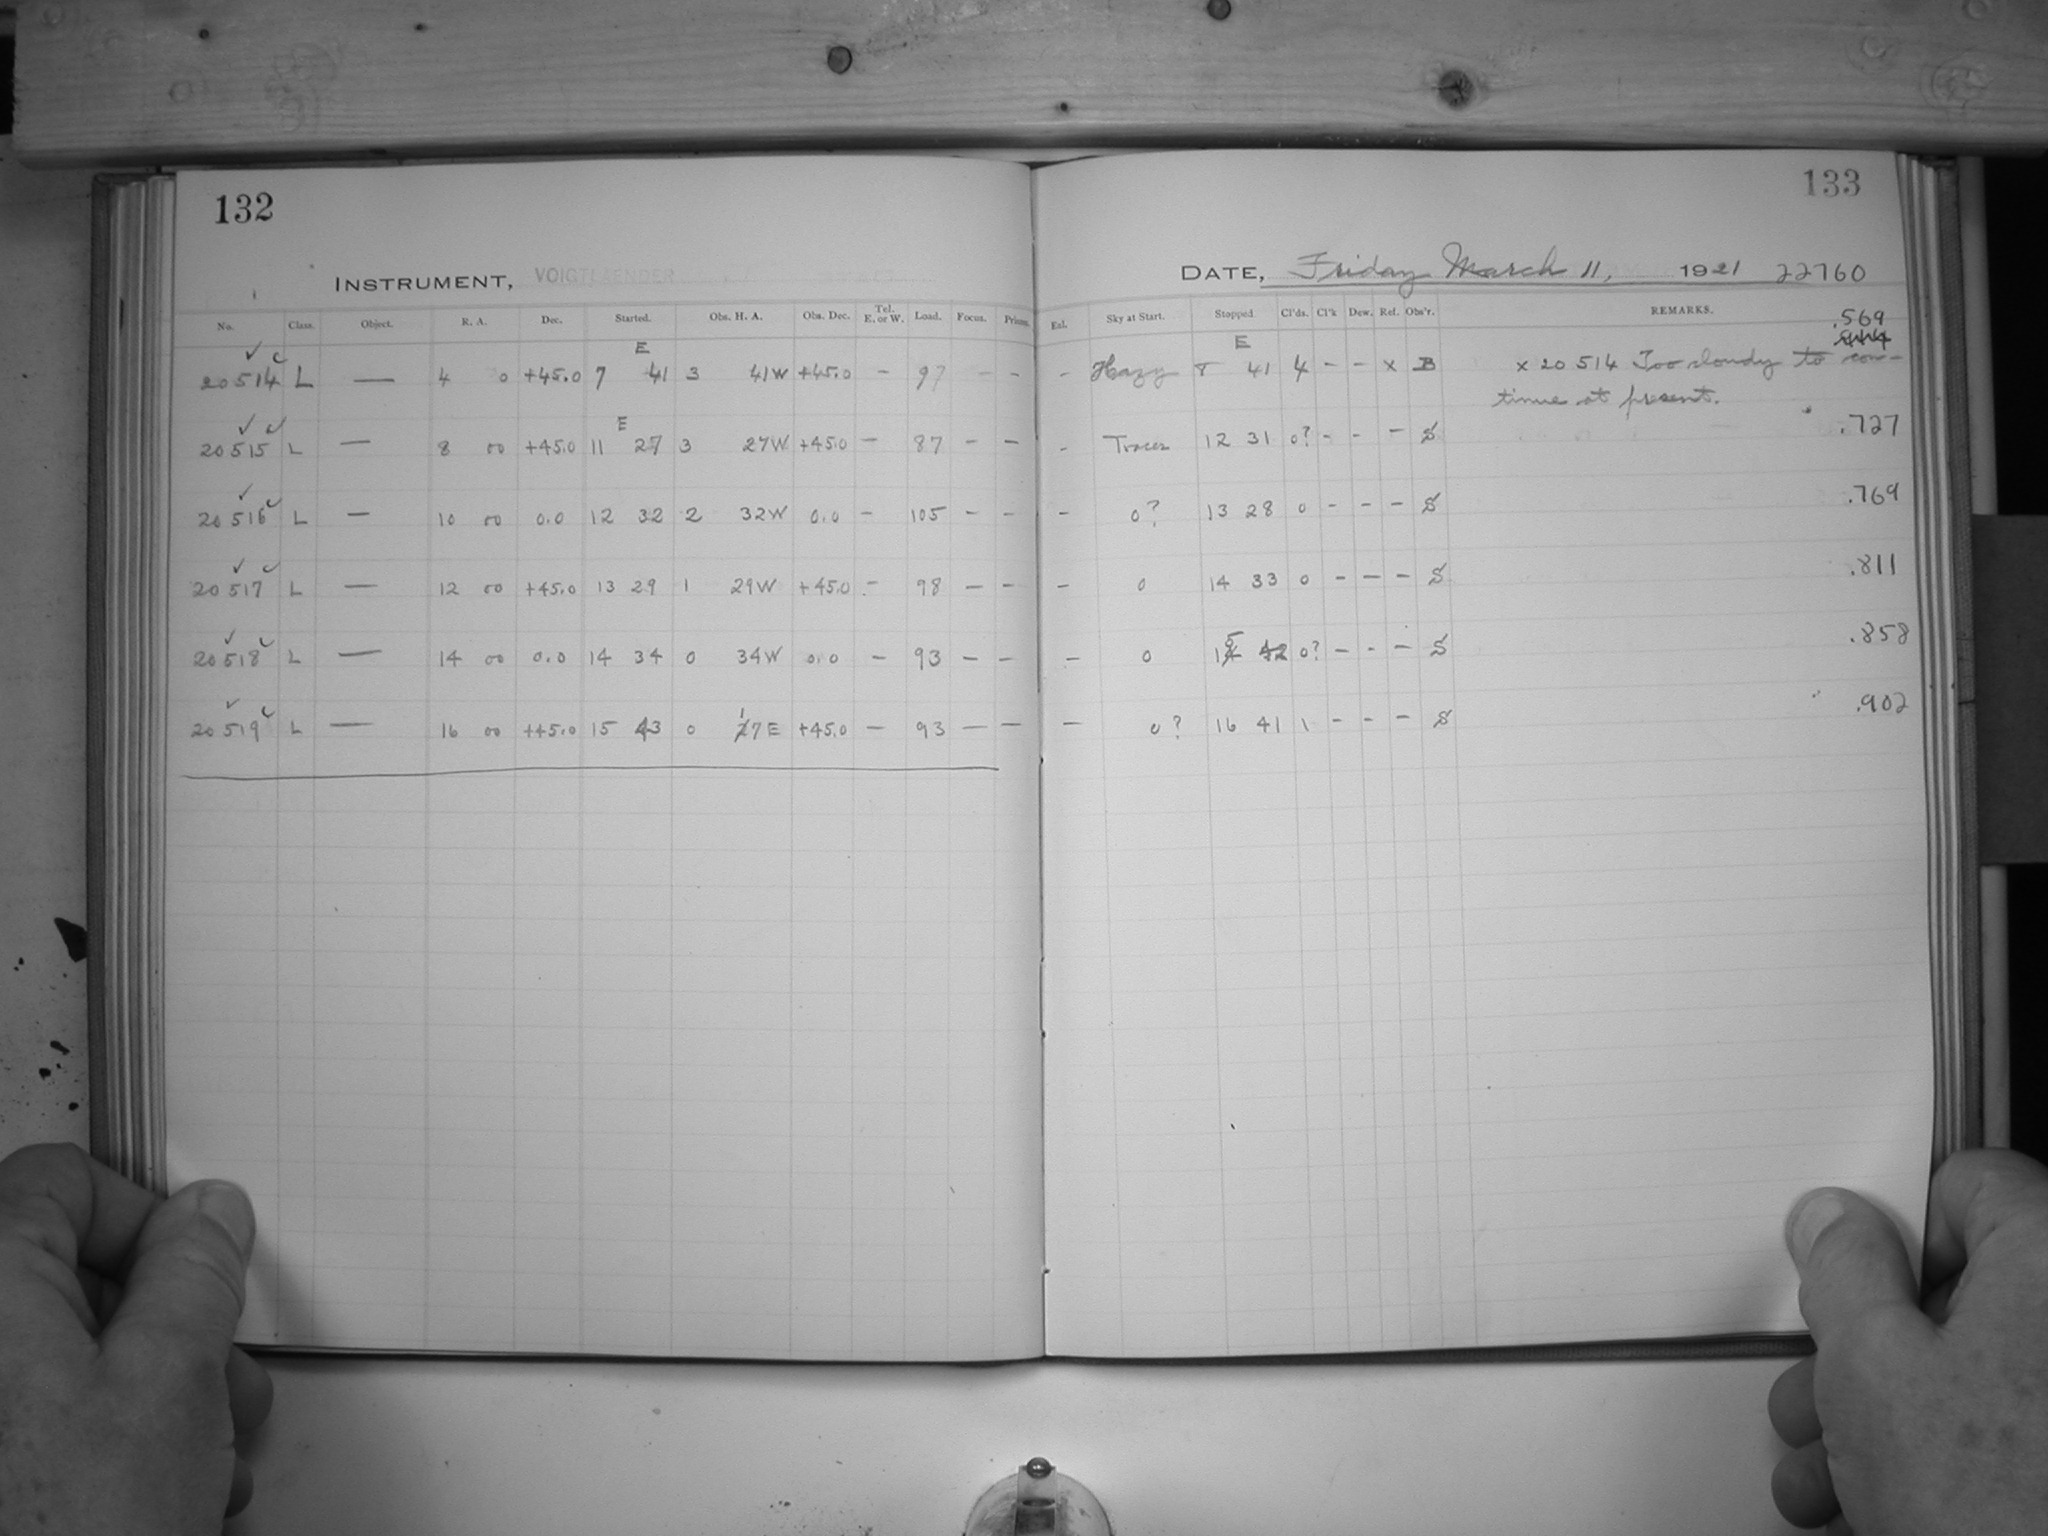 132
INSTRUMENT, VOIGTLAENDER
No. Class. Object. R. A. Dec. Started. Obs. H. A. Obs. Dec. Tel. E. or W. Load. Focus. Prisms.
E
20514 L — 4 0 +45.0 7 41 3 41W +45.0 - 97 - -
E
20515 L — 8 00 +45.0 11 27 3 27W +45.0 - 87 - -
20516 L — 10 00 0.0 12 32 2 32W 0.0 - 105 - -
20517 L — 12 00 +45.0 13 29 1 29W +45.0 - 98 - -
20518 L — 14 00 0.0 14 34 0 34W 0.0 - 93 - -
20519 L — 16 00 +45.0 15 43 0 17E +45.0 - 93 - -
133
DATE, Friday March 11, 1921 22760
Enl. Sky at Start. Stopped. Cl'ds. Cl'k Dew. Ref. Obs'r. REMARKS.
.569
E
- Hazy 8 41 4 - - x B x 20514 Too cloudy to con-
tinue at present.
- Traces 12 31 0? - - - S .727
- 0? 13 28 0 - - - S .769
- 0 14 33 0 - - - S .811
- 0 15 42 0? - - - S .858
- 0? 16 41 1 - - - S .902